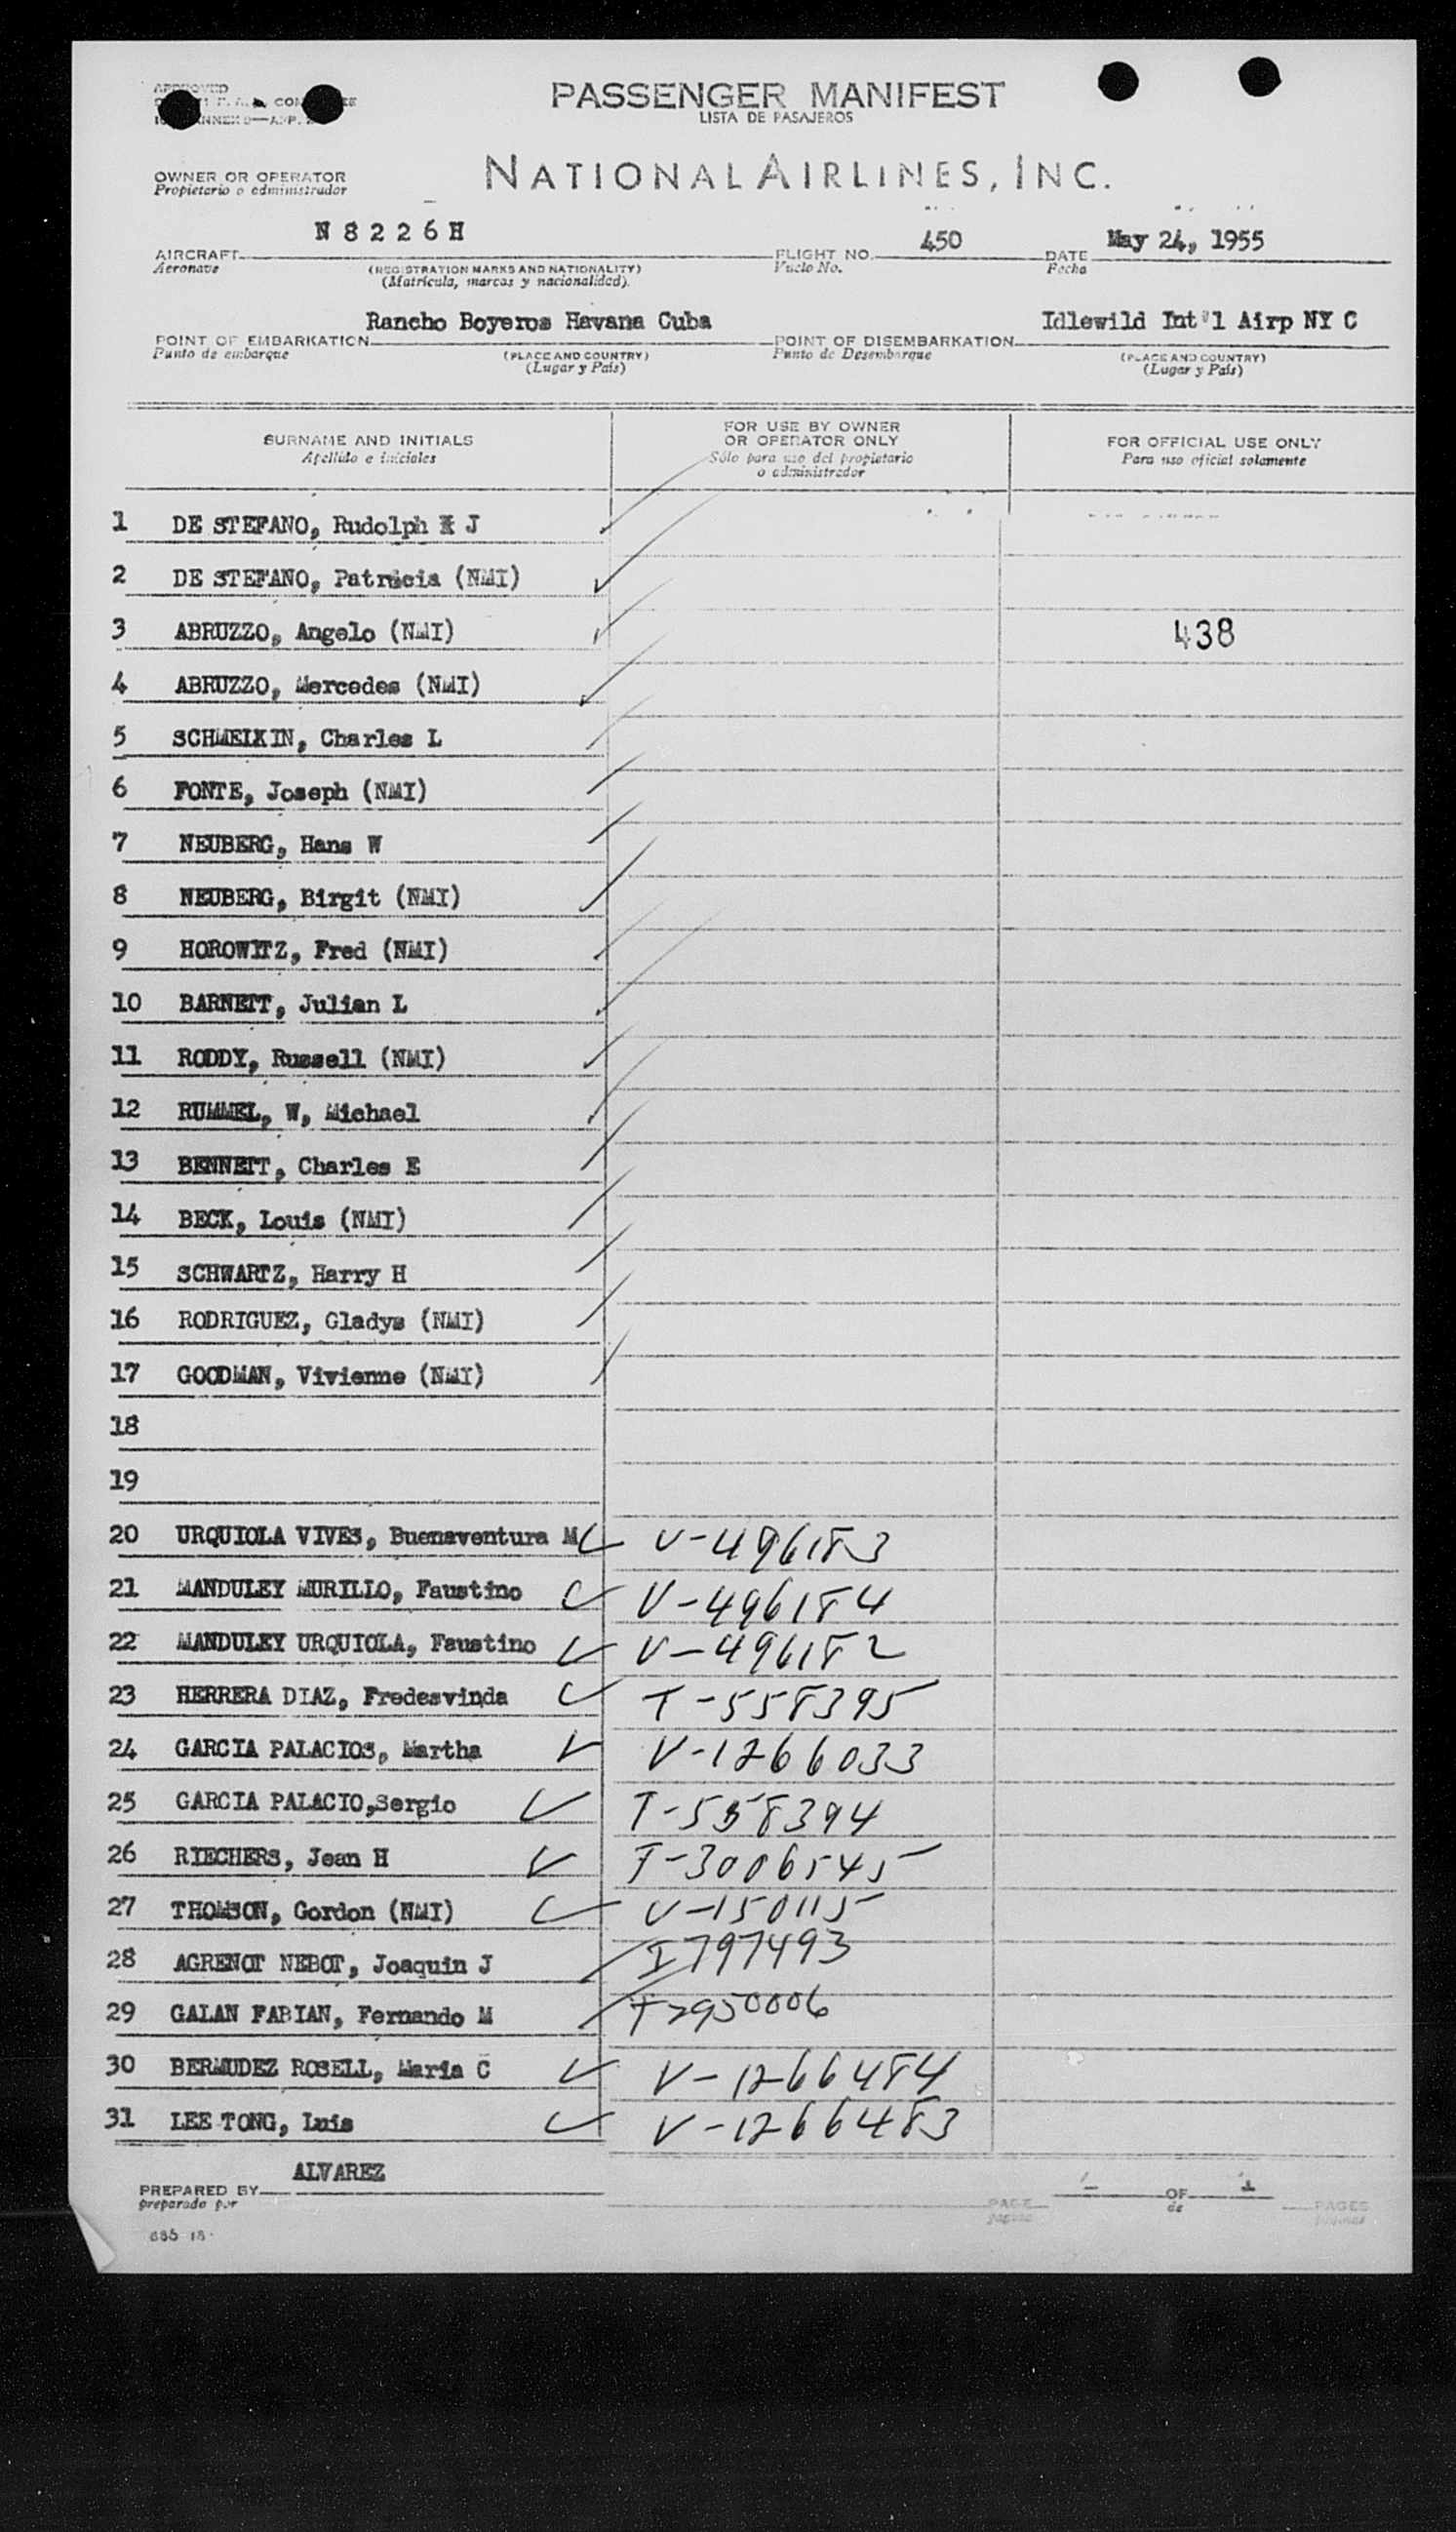 APPROVED
PASSENGER MANIFEST
LISTA DE PASAJEROS
OWNER OR OPERATOR
Propietario o administrador
NATIONAL AIRLINES, INC.
AIRCRAFT N8226H FLIGHT NO. 450 DATE May 24, 1955
Aeronave (REGISTRATION MARKS AND NATIONALITY) Vuelo No. Fecha
(Matrícula, marcas y nacionalidad).
POINT OF EMBARKATION Rancho Boyeros Havana Cuba POINT OF DISEMBARKATION Idlewild Int'l Airp NY C
Punto de embarque (PLACE AND COUNTRY) Punto de Desembarque (PLACE AND COUNTRY)
(Lugar y País) (Lugar y País)
SURNAME AND INITIALS
Apellido e iniciales
FOR USE BY OWNER
OR OPERATOR ONLY
Sólo para uso del propietario
o administrador
FOR OFFICIAL USE ONLY
Para uso oficial solamente
1 DE STEFANO, Rudolph J
2 DE STEFANO, Patricia (NMI)
3 ABRUZZO, Angelo (NMI) 438
4 ABRUZZO, Mercedes (NMI)
5 SCHMEIKIN, Charles L
6 FONTE, Joseph (NMI)
7 NEUBERG, Hans W
8 NEUBERG, Birgit (NMI)
9 HOROWITZ, Fred (NMI)
10 BARNETT, Julian L
11 RODDY, Russell (NMI)
12 RUMMEL, W, Michael
13 BENNETT, Charles E
14 BECK, Louis (NMI)
15 SCHWARTZ, Harry H
16 RODRIGUEZ, Gladys (NMI)
17 GOODMAN, Vivienne (NMI)
18
19
20 URQUIOLA VIVES, Buenaventura M V-496183
21 MANDULEY MURILLO, Faustino V-496184
22 MANDULEY URQUIOLA, Faustino V-496182
23 HERRERA DIAZ, Fredesvinda T-558395
24 GARCIA PALACIOS, Martha V-1266033
25 GARCIA PALACIO,Sergio T-558394
26 RIECHERS, Jean H T-3006545
27 THOMSON, Gordon (NMI) V-150115
28 AGRENOT NEBOT, Joaquin J I797493
29 GALAN FABIAN, Fernando M T2950006
30 BERMUDEZ ROSELL, Maria C V-1266484
31 LEE TONG, Luis V-1266483
PREPARED BY ALVAREZ PAGE 1 OF 1 PAGES
preparado por de